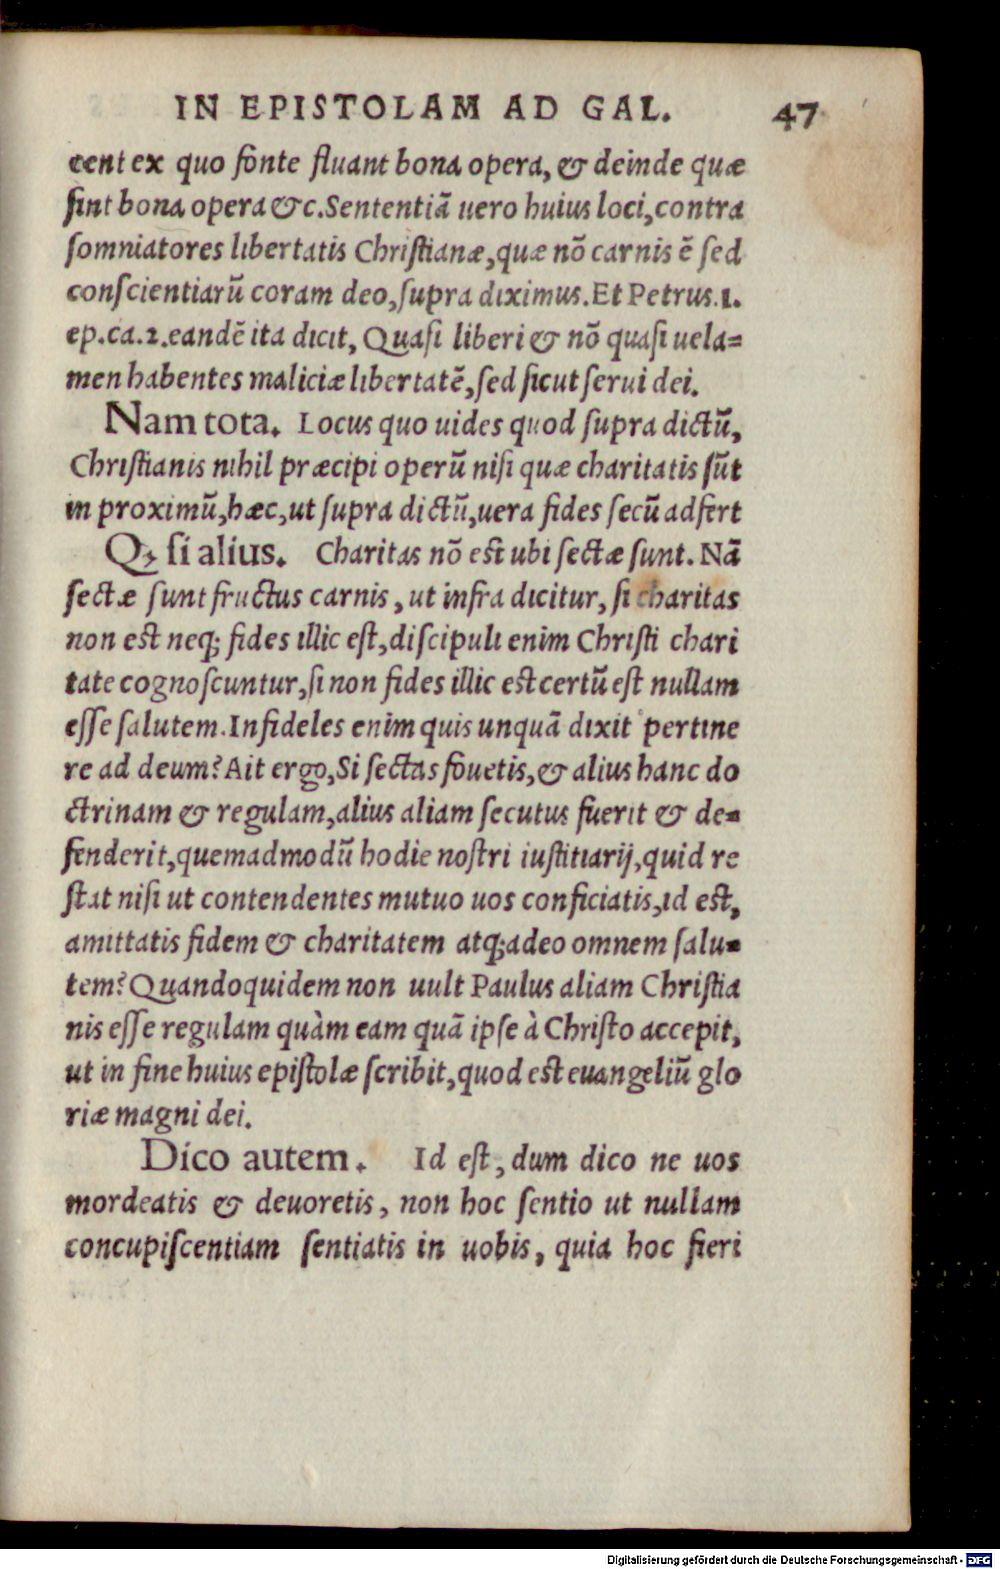 IN EPISTOLAM AD GAL. 47
cent ex quo fonte fluant bona opera, & deinde quæ
ſint bona opera &c. Sententiã uero huius loci, contra
ſomniatores libertatis Chriſtianæ, quæ nõ carnis ẽ ſed
conſcientiarũ coram deo, ſupra diximus. Et Petrus. 1.
ep. ca. 2. eandẽ ita dicit, Quaſi liberi & nõ quaſi uela⸗
men habentes maliciæ libertatẽ, ſed ſicut ſerui dei.
Nam tota. Locus quo uides quod ſupra dictũ,
Chriſtianis nihil præcipi operũ niſi quæ charitatis ſũt
in proximũ, hæc, ut ſupra dictũ, uera fides ſecũ adfert
Qꝫ ſi alius. Charitas nõ eſt ubi ſectæ ſunt. Nã
ſectæ ſunt fructus carnis, ut infra dicitur, ſi charitas
non eſt neqꝫ fides illic eſt, diſcipuli enim Chriſti chari
tate cognoſcuntur, ſi non fides illic eſt certũ eſt nullam
eſſe ſalutem. Infideles enim quis unquã dixit pertine
re ad deum? Ait ergo, Si ſectas fouetis, & alius hanc do
ctrinam & regulam, alius aliam ſecutus fuerit & de⸗
fenderit, quemadmodũ hodie noſtri iuſtitiarij, quid re
ſtat niſi ut contendentes mutuo uos conficiatis, id eſt,
amittatis fidem & charitatem atqꝫ adeo omnem ſalu⸗
tem? Quandoquidem non uult Paulus aliam Chriſtia
nis eſſe regulam quàm eam quã ipſe à Chriſto accepit,
ut in fine huius epiſtolæ ſcribit, quod eſt euangeliũ glo
riæ magni dei.
Dico autem. Id eſt, dum dico ne uos
mordeatis & deuoretis, non hoc ſentio ut nullam
concupiſcentiam ſentiatis in uobis, quia hoc fieri
Digitalisierung gefördert durch die Deutsche Forschungsgemeinschaft - DFG